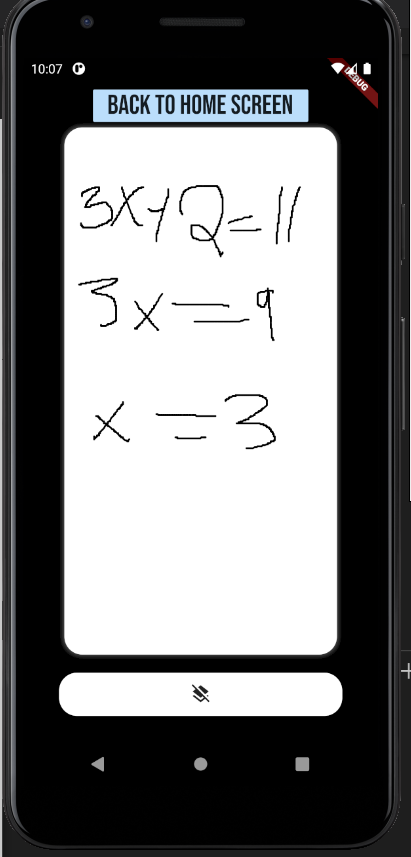 10:07
DEBUG
BACK TO HOME SCREEN
3x+2=11
3x=9
x=3